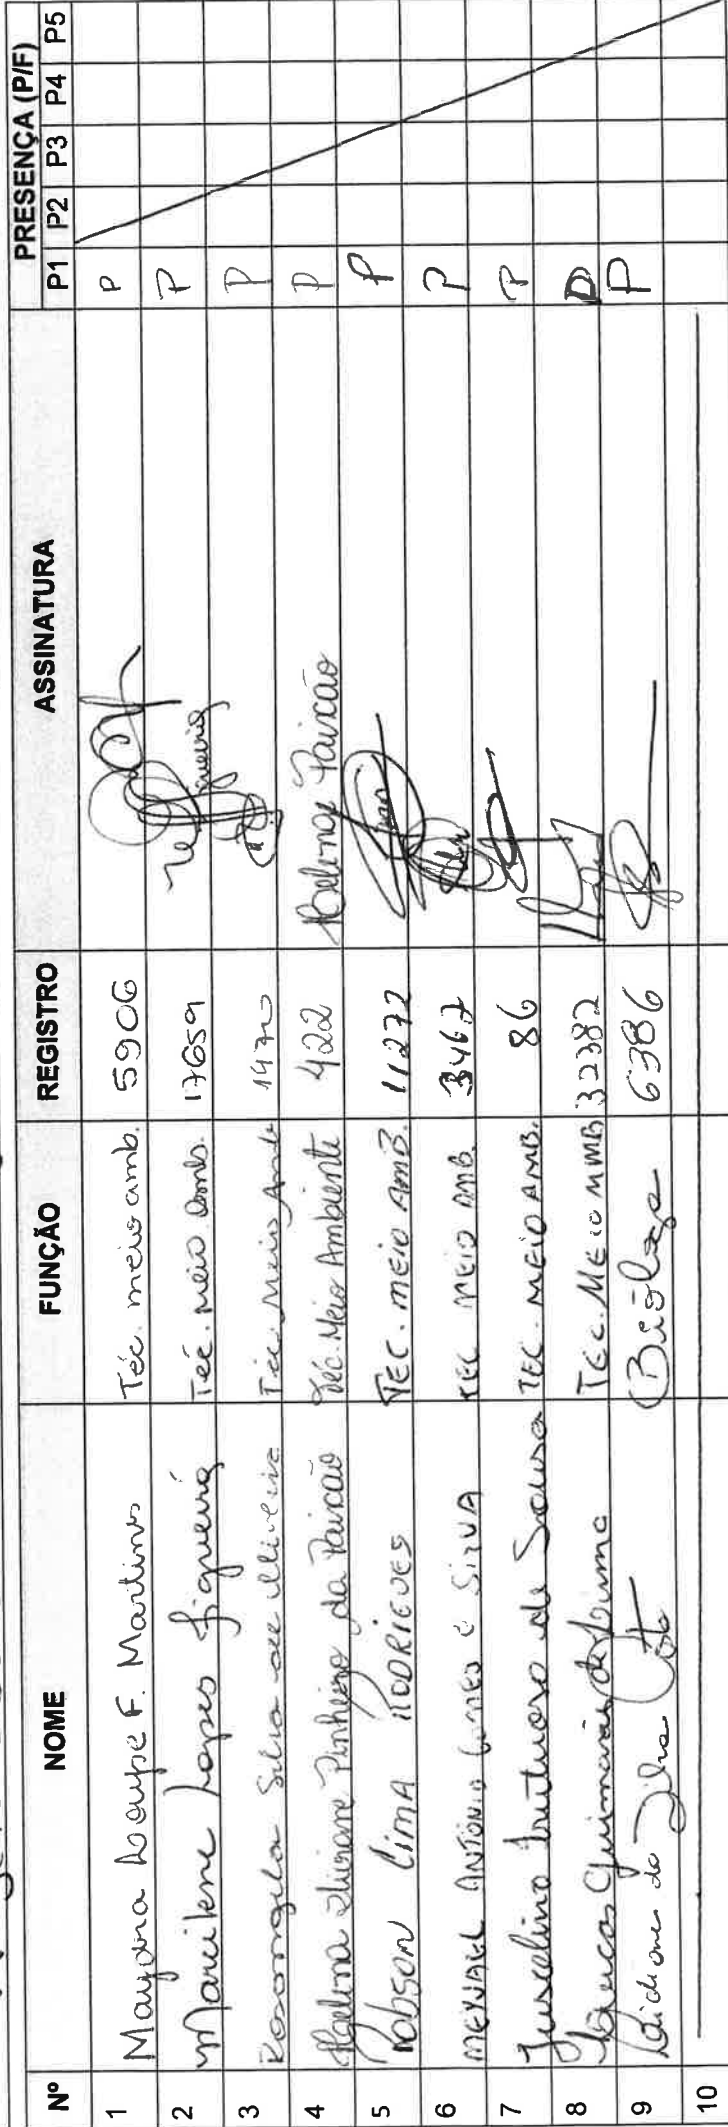 Nº NOME FUNÇÃO REGISTRO ASSINATURA PRESENÇA (P/F)
P1 P2 P3 P4 P5
1 Mayana F. Martins Téc. meio amb. 5906 P
2 Marcilene Lopes Siqueira Tec. meio amb. 17659 Siqueira P
3 Rosangela Silva de Oliveira Téc. Meio Amb 1470 P
4 Pinheiro da Paixão Téc. Meio Ambiente 422 Paixão P
5 Robson Lima RODRIGUES TEC. meio AMB. 11272 P
6 ANTÔNIO GOMES E SILVA TEC MEIO AMB. 3467 P
7 Juscelino Frutuoso de Sousa TEC. MEIO AMB. 86 P
8 Guimarães de Lima TEC. MEIO AMB 32382 P
9 Laidiane da Silva Costa Bióloga 6386 P
10